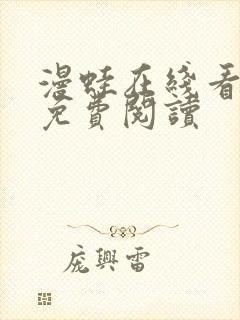 漫蛙在线看
免費閱讀
庞興雷